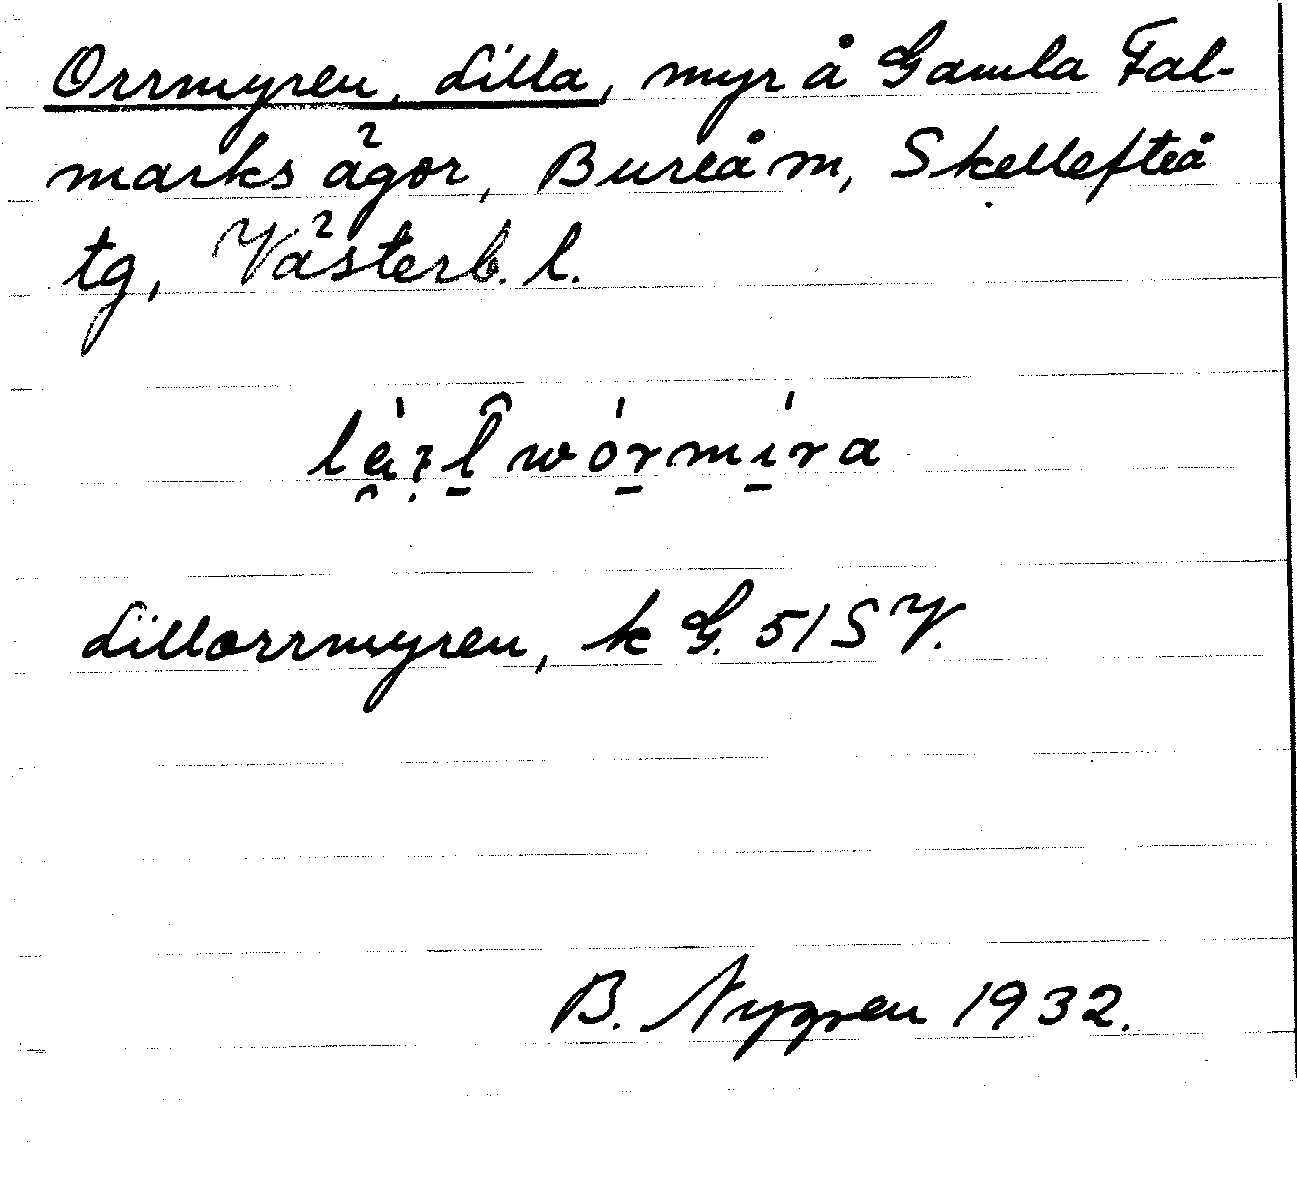 Orrmyren, Lilla, myr å Gamla Fal-
marks ägor, Bureå m, Skellefteå
tg, Västerb. l.
Lillorrmyren, k G. 51 SV.
B. Nygren 1932.